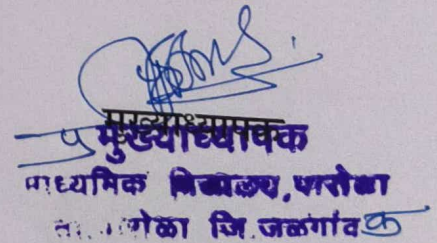 मुख्याध्यापक
मुख्याध्यापक
माध्यमिक विद्यालय, पारोळा
जि. जळगांव